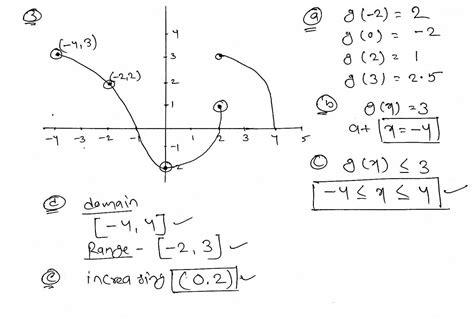 ③
(-4,3)
(-2,2)
4
3
2
1
-4 -3 -2 -1 0 1 2 3 4 5
-1
-2
ⓐ g(-2) = 2
g(0) = -2
g(2) = 1
g(3) = 2.5
ⓑ g(x) = 3
at x = -4
ⓒ g(x) ≤ 3
-4 ≤ x ≤ 4
ⓓ domain
[-4, 4]
Range - [-2, 3]
ⓔ increasing (0.2)